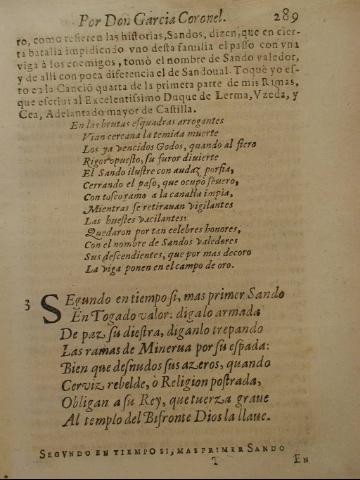 Por Don Garcia Coronel. 289
ro, como refieren las historias, Sandos, dizen, que en cier-
ta batalla impidiendo vno desta familia el passo con vna
viga à los enemigos, tomò el nombre de Sando valedor,
y de alli con poca diferencia el de Sandoual. Toquè yo es-
to en la Canciõ quarta de la primera parte de mis Rimas,
que escriui al Excelentissimo Duque de Lerma, Vzeda, y
Cea, Adelantado mayor de Castilla.
En las brutas esquadras arrogantes
Vian cercana la temida muerte
Los ya vencidos Godos, quando al fiero
Rigor opuesto, su furor diuierte
El Sando ilustre con audaz porfia,
Cerrando el paso, que ocupò seuero,
Con tosco ramo a la canalla impia,
Mientras se retirauan vigilantes
Las huestes vacilantes:
Quedaron por tan celebres honores,
Con el nombre de Sandos valedores
Sus descendientes, que por mas decoro
La viga ponen en el campo de oro.
3 SEgundo en tiempo si, mas primer Sando
En Togado valor: digalo armada
De paz su diestra, diganlo trepando
Las ramas de Minerua por su espada:
Bien que desnudos sus azeros, quando
Cerviz rebelde, ò Religion postrada,
Obligan a su Rey, que tuerza graue
Al templo del Bifronte Dios la llaue.
SEGVNDO EN TIEMPO SI, MAS PRIMER SANDO
T EN